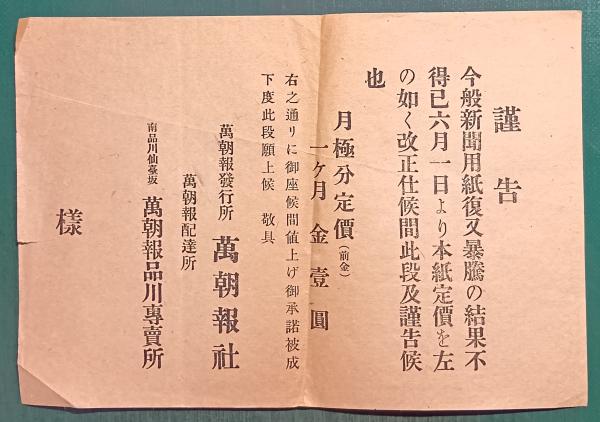 謹告
今般新聞用紙復又暴騰の結果不
得已六月一日より本紙定價を左
の如く改正仕候間此段及謹告候
也
月極分定價(前金)
一ケ月金壹圓
右之通リに御座候間値上げ御承諾被成
下度此段願上候 敬具
萬朝報發行所 萬朝報社
萬朝報配達所
南品川仙臺坂 萬朝報品川專賣所
樣